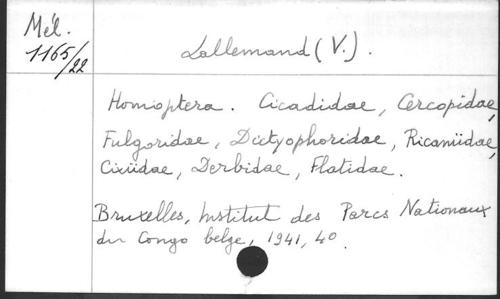 Mél.
1165/22
Lallemand (V.).
Homoptera. Cicadidae, Cercopidae,
Fulgoridae, Dictyophoridae, Ricaniidae,
Cixiidae, Derbidae, Flatidae.
Bruxelles, Institut des Parcs Nationaux
du Congo belge, 1941, 40.